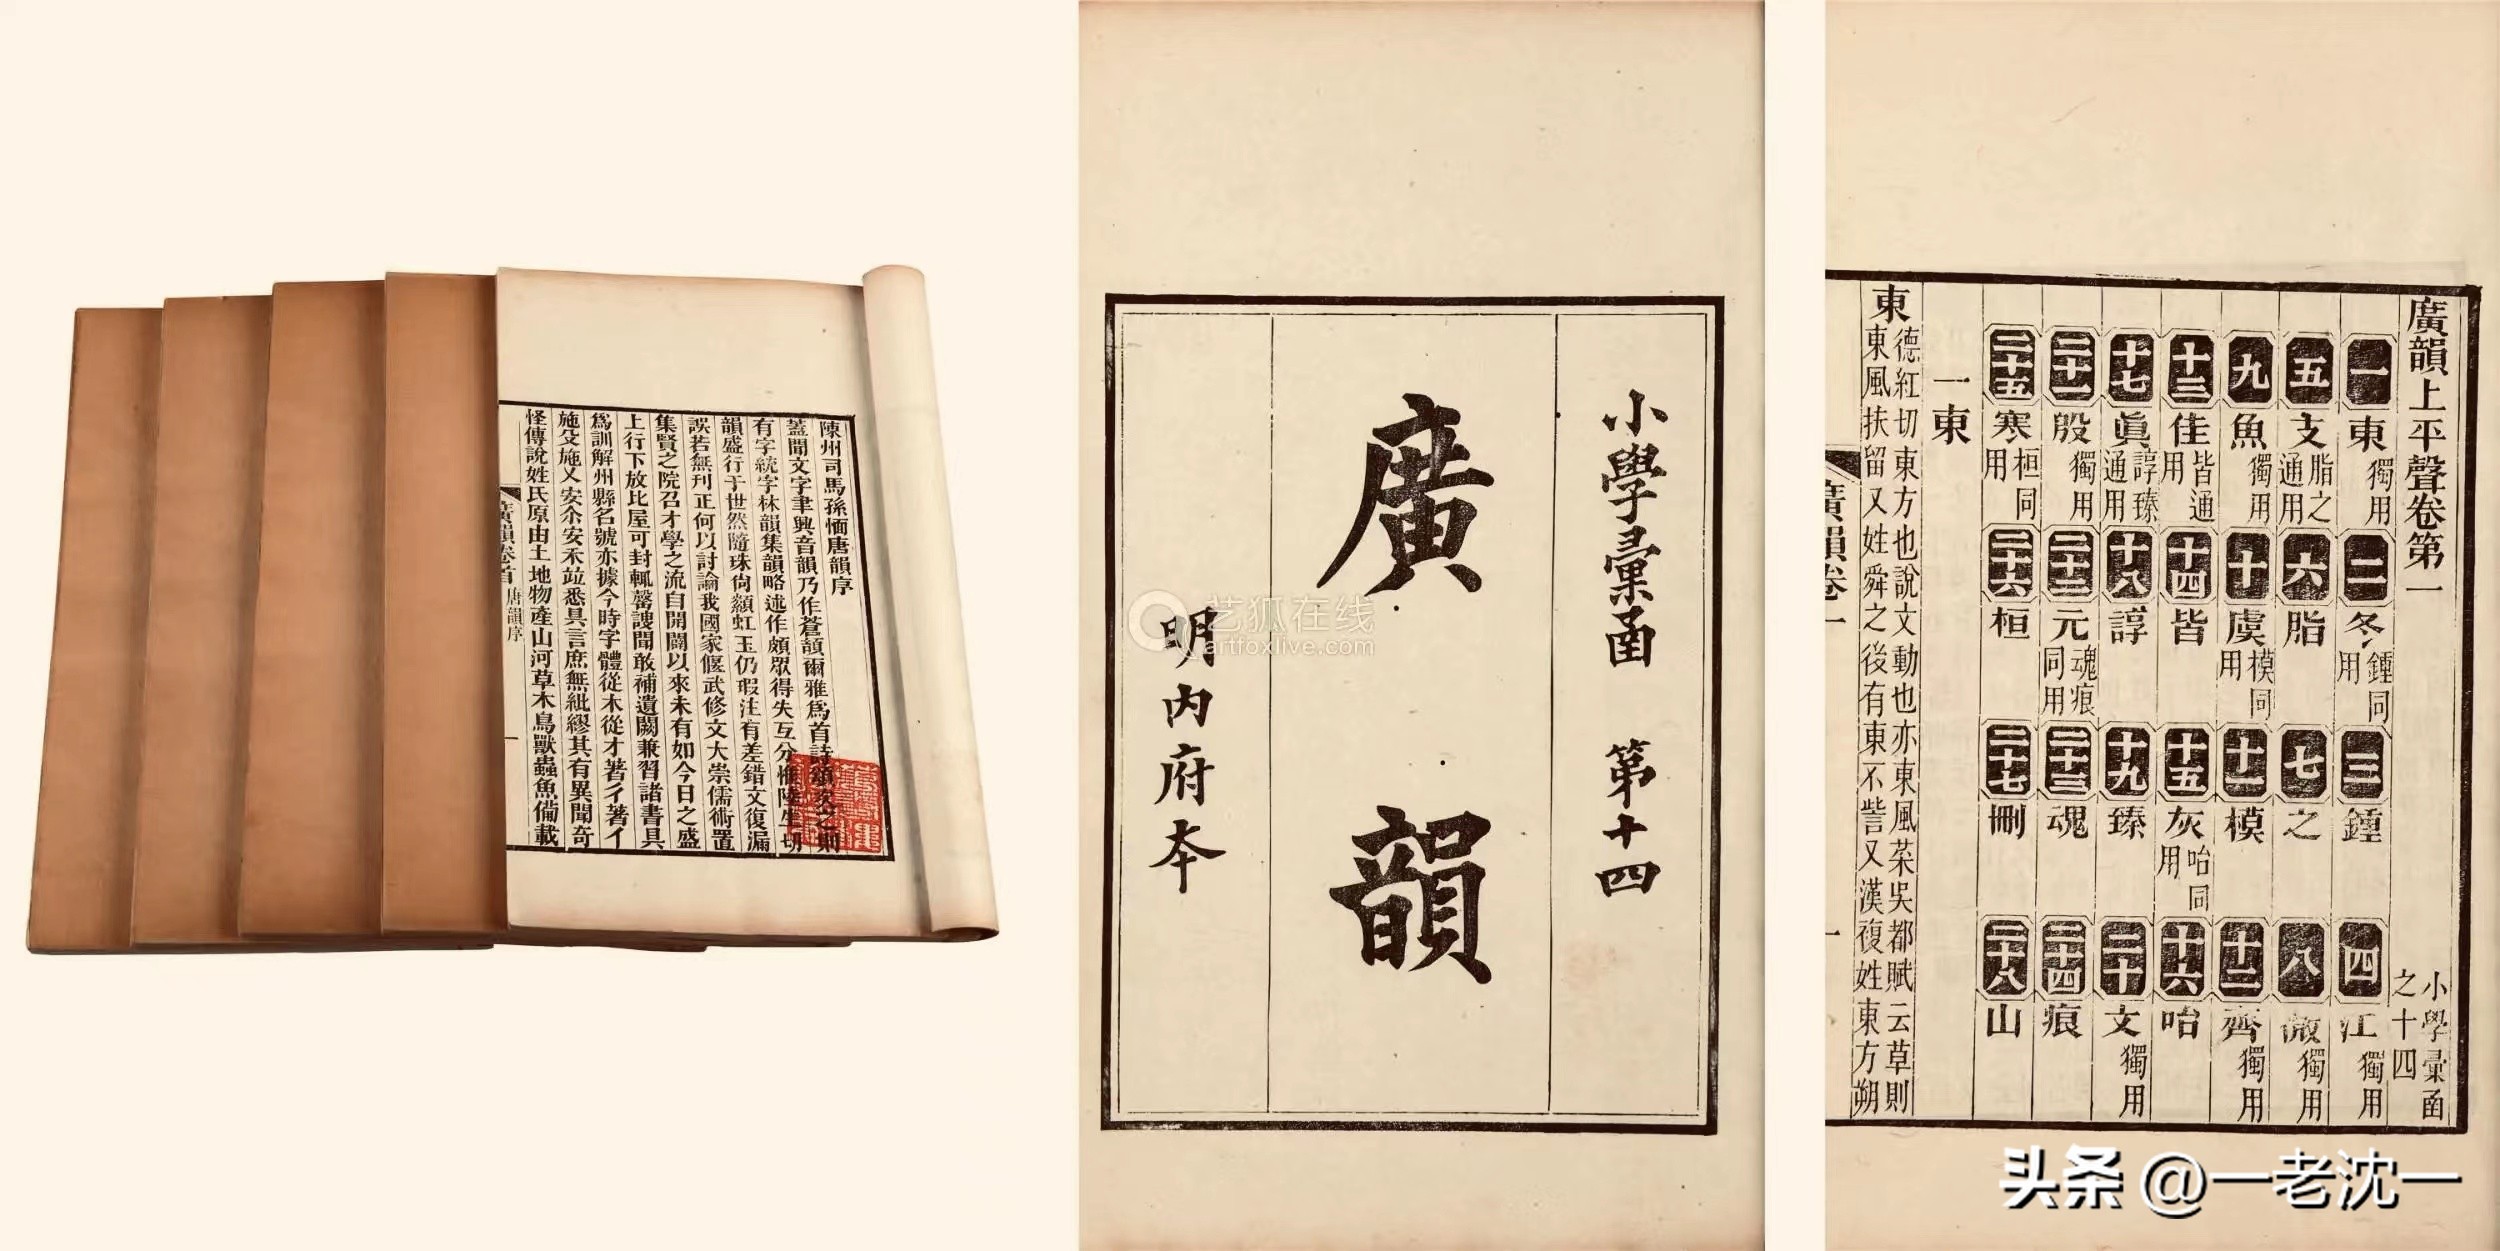 陳州司馬孫愐唐韻序
蓋聞文字聿興音韻乃作蒼頡爾雅爲首詩頌次之則
有字統字林韻集韻略述作頗衆得失互分惟陸生切
韻盛行于世然隨珠尙纇虹玉仍瑕注有差錯文復漏
誤若無刊正何以討論我國家偃武修文大崇儒術置
集賢之院召才學之流自開闢以來未有如今日之盛
上行下放比屋可封輒罄謏聞敢補遺闕兼習諸書具
爲訓解州縣名號亦據今時字體從木從才著彳著亻
施殳施又安尒安禾竝悉具言庶無紕繆其有異聞奇
怪傳說姓氏原由土地物產山河草木鳥獸蟲魚備載
廣韻卷首 唐韻序 一
小學彙函 第十四
廣韻
明內府本
艺狐在线
artfoxlive.com
廣韻上平聲卷第一 小學彙函之十四
一東獨用 二冬鍾同用 三鍾 四江獨用
五支脂之通用 六脂 七之 八微獨用
九魚獨用 十虞模同用 十一模 十二齊獨用
十三佳皆通用 十四皆 十五灰咍同用 十六咍
十七眞諄臻通用 十八諄 十九臻 二十文獨用
二十一殷獨用 二十二元魂痕同用 二十三魂 二十四痕
二十五寒桓同用 二十六桓 二十七刪 二十八山
一東
東 德紅切東方也說文動也亦東風菜吳都賦云草則
東風扶留又姓舜之後有東不訾又漢複姓東方朔
廣韻卷一 一
头条 @一老沈一